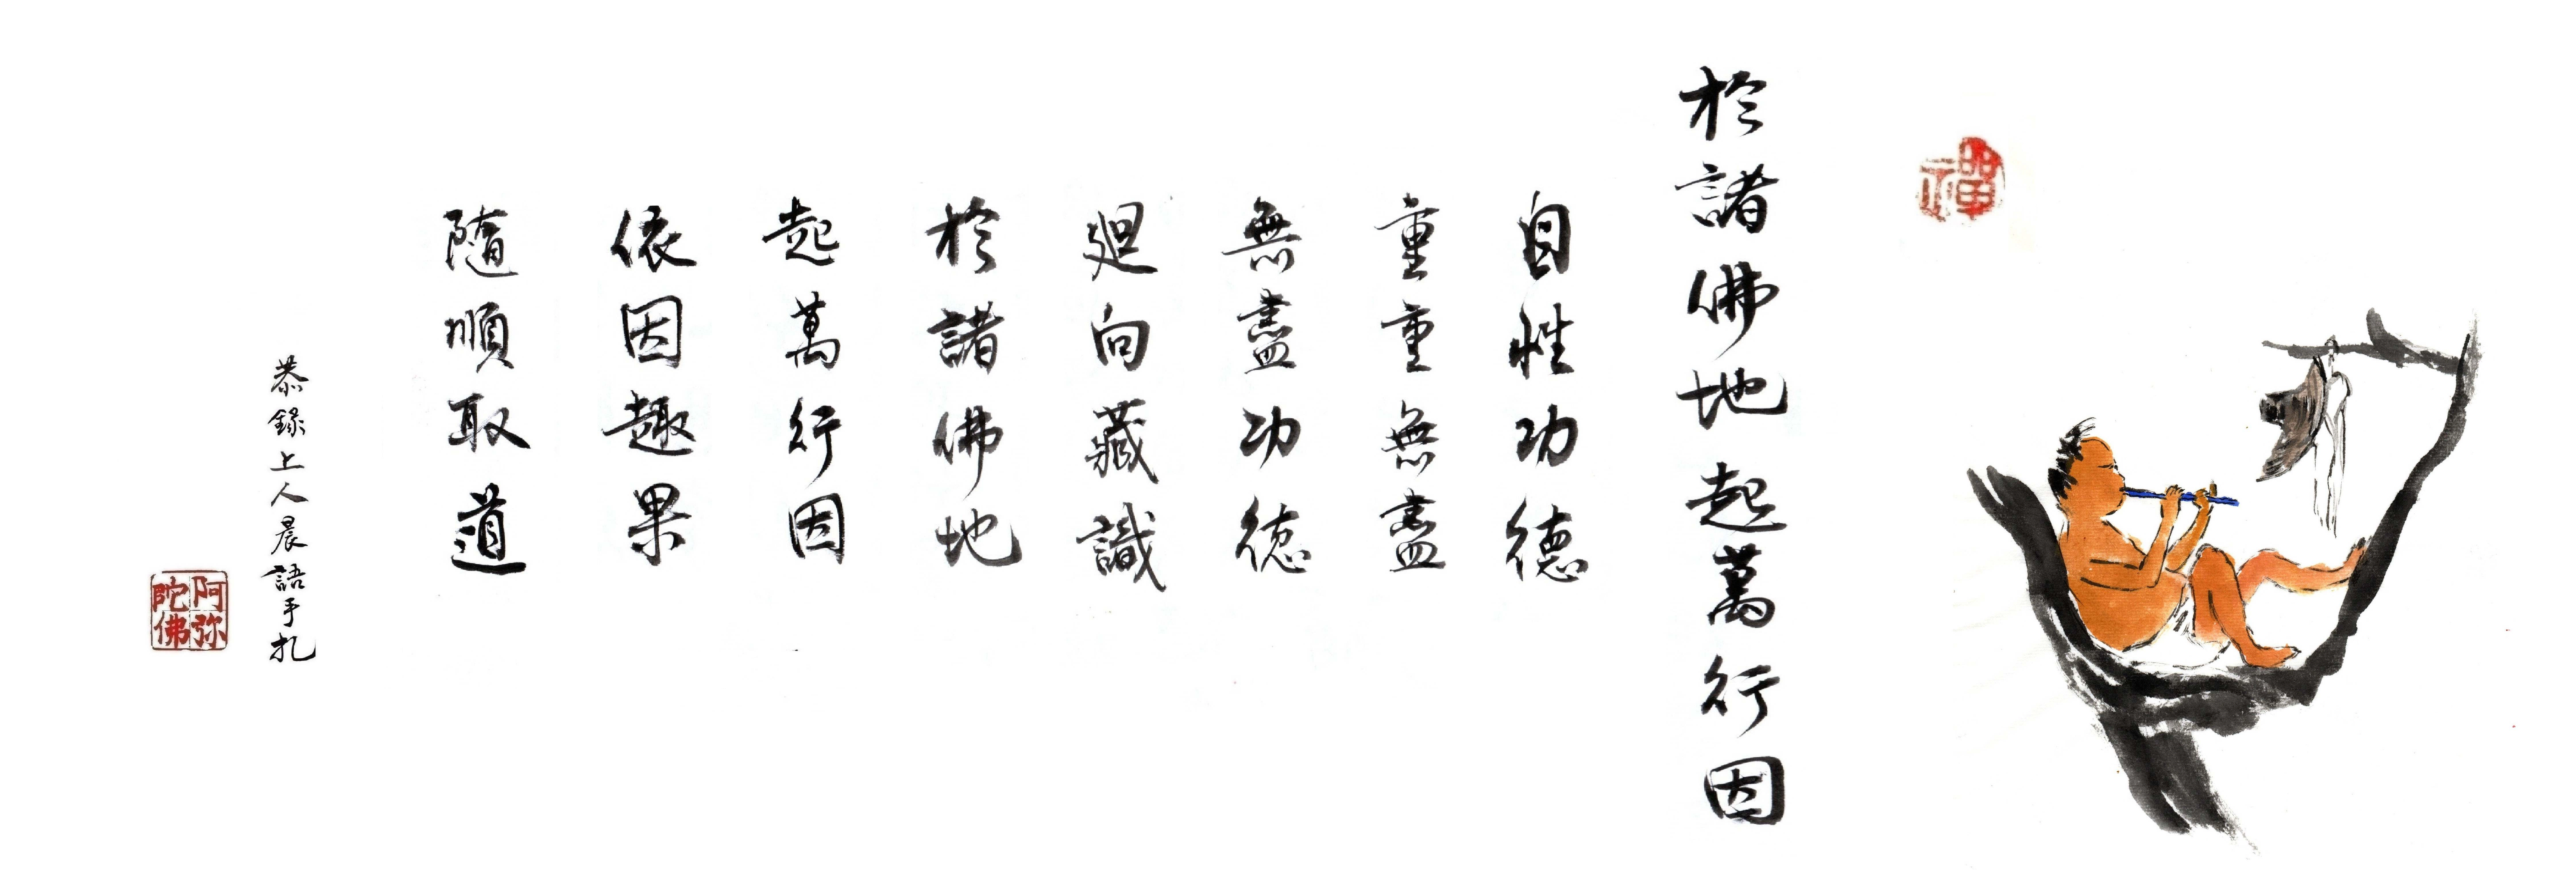 禪
於諸佛地起萬行因
自性功德
重重無盡
無盡功德
迴向藏識
於諸佛地
起萬行因
依因趣果
隨順取道
恭錄上人晨語手札
阿弥
陀佛